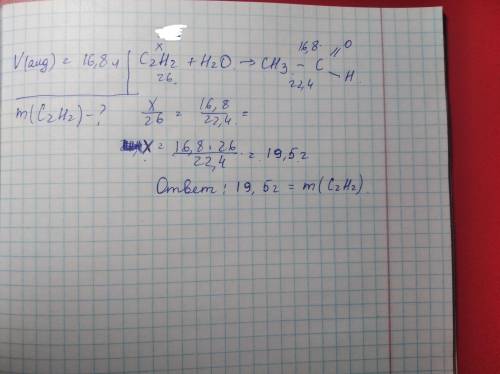 V(альд) = 16,8 л
m(C₂H₂) - ?
x 16,8
C₂H₂ + H₂O → CH₃ - C = O - H
26 22,4
x/26 = 16,8/22,4 =
x = 16,8 · 26/22,4 = 19,5 г
Ответ: 19,5 г = m(C₂H₂)